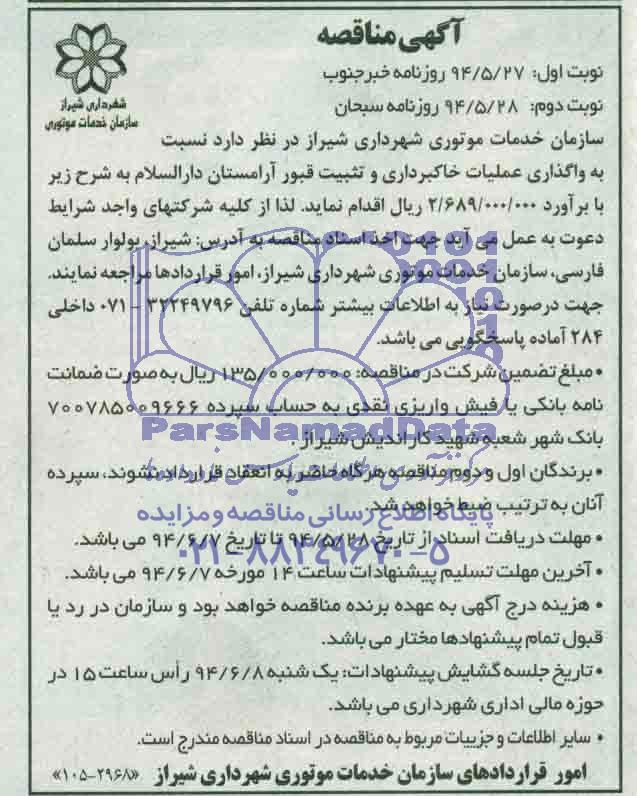 آگهی مناقصه
شهرداری شیراز
سازمان خدمات موتوری
نوبت اول: ۹۴/۵/۲۷ روزنامه خبرجنوب
نوبت دوم: ۹۴/۵/۲۸ روزنامه سبحان
سازمان خدمات موتوری شهرداری شیراز در نظر دارد نسبت
به واگذاری عملیات خاکبرداری و تثبیت قبور آرامستان دارالسلام به شرح زیر
با برآورد ۲/۶۸۹/۰۰۰/۰۰۰ ریال اقدام نماید. لذا از کلیه شرکتهای واجد شرایط
دعوت به عمل می آید جهت اخذ اسناد مناقصه به آدرس: شیراز، بولوار سلمان
فارسی، سازمان خدمات موتوری شهرداری شیراز، امور قراردادها مراجعه نمایند.
جهت درصورت نیاز به اطلاعات بیشتر شماره تلفن ۳۲۲۴۹۷۹۶ - ۰۷۱ داخلی
۲۸۴ آماده پاسخگویی می باشد.
• مبلغ تضمین شرکت در مناقصه: ۱۳۵/۰۰۰/۰۰۰ ریال به صورت ضمانت
نامه بانکی یا فیش واریزی نقدی به حساب سپرده ۷۰۰۷۸۵۰۰۹۶۶۶
بانک شهر شعبه شهید کاراندیش شیراز.
ParsNamadData
• برندگان اول و دوم مناقصه هرگاه حاضر به انعقاد قرارداد نشوند، سپرده
آنان به ترتیب ضبط خواهد شد.
پایگاه اطلاع رسانی مناقصه و مزایده
• مهلت دریافت اسناد از تاریخ ۹۴/۵/۲۸ تا تاریخ ۹۴/۶/۷ می باشد.
۰۲۱-۸۸۳۴۹۶۷۰-۵
• آخرین مهلت تسلیم پیشنهادات ساعت ۱۴ مورخه ۹۴/۶/۷ می باشد.
• هزینه درج آگهی به عهده برنده مناقصه خواهد بود و سازمان در رد یا
قبول تمام پیشنهادها مختار می باشد.
• تاریخ جلسه گشایش پیشنهادات: یک شنبه ۹۴/۶/۸ رأس ساعت ۱۵ در
حوزه مالی اداری شهرداری می باشد.
• سایر اطلاعات و جزییات مربوط به مناقصه در اسناد مناقصه مندرج است.
امور قراردادهای سازمان خدمات موتوری شهرداری شیراز «۲۹۶۸-۱۰۵»